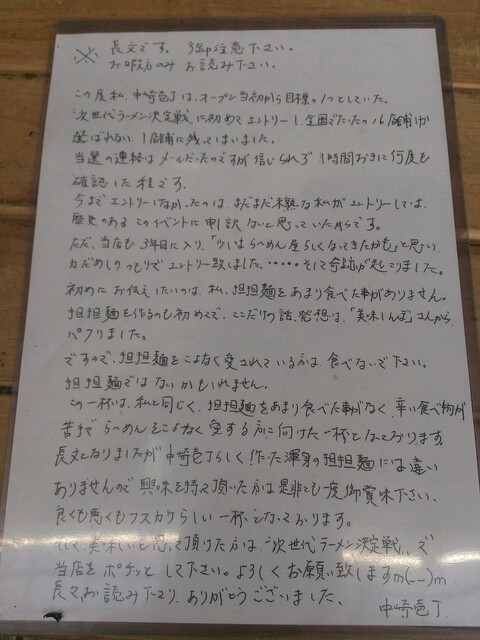 ※ 長文です。御注意下さい。
お暇な方のみ お読み下さい。
この度私、中崎壱丁は、オープン当初から目標の1つとしていた。
"次世代ラーメン決定戦"に初めてエントリーし、全国でたったの16店舗しか
選ばれない、1店舗に残ってしまいました。
当選の連絡はメールだったのですが信じられず1時間おきに何度も
確認した程です。
今までエントリーしなかったのは、まだまだ未熟な私がエントリーしては、
歴史のあるこのイベントに申し訳ないと思っていたからです。
ただ、当店も3年目に入り、「少しはらーめん屋らしくなってきたかも」と思い
力だめしのつもりでエントリー致しました。・・・・・そして奇跡が起こりました。
初めにお伝えしたいのは、私、担担麺をあまり食べた事がありません。
担担麺を作るのも初めてで、ここだけの話、発想は、「美味しんぼ」さんから、
パクりました。
ですので、担担麺をこよなく愛されている方は、食べないで下さい。
担担麺ではないかもしれません。
この一杯は、私と同じく、担担麺をあまり食べた事がなく、辛い食べ物が
苦手でらーめんをこよなく愛する方に向けた一杯となっております
長文となりましたが中崎壱丁らしく!作った渾身の担担麺には違い
ありませんので興味を持って頂いた方は是非とも一度御賞味下さい。
良くも悪くもフスカケらしい一杯となっております。
そして、美味しいと思って頂けた方は"次世代ラーメン決定戦"で
当店をポチッとして下さい。よろしくお願い致しますm(__)m
長々、お読み下さり、ありがとうございました。
中崎壱丁